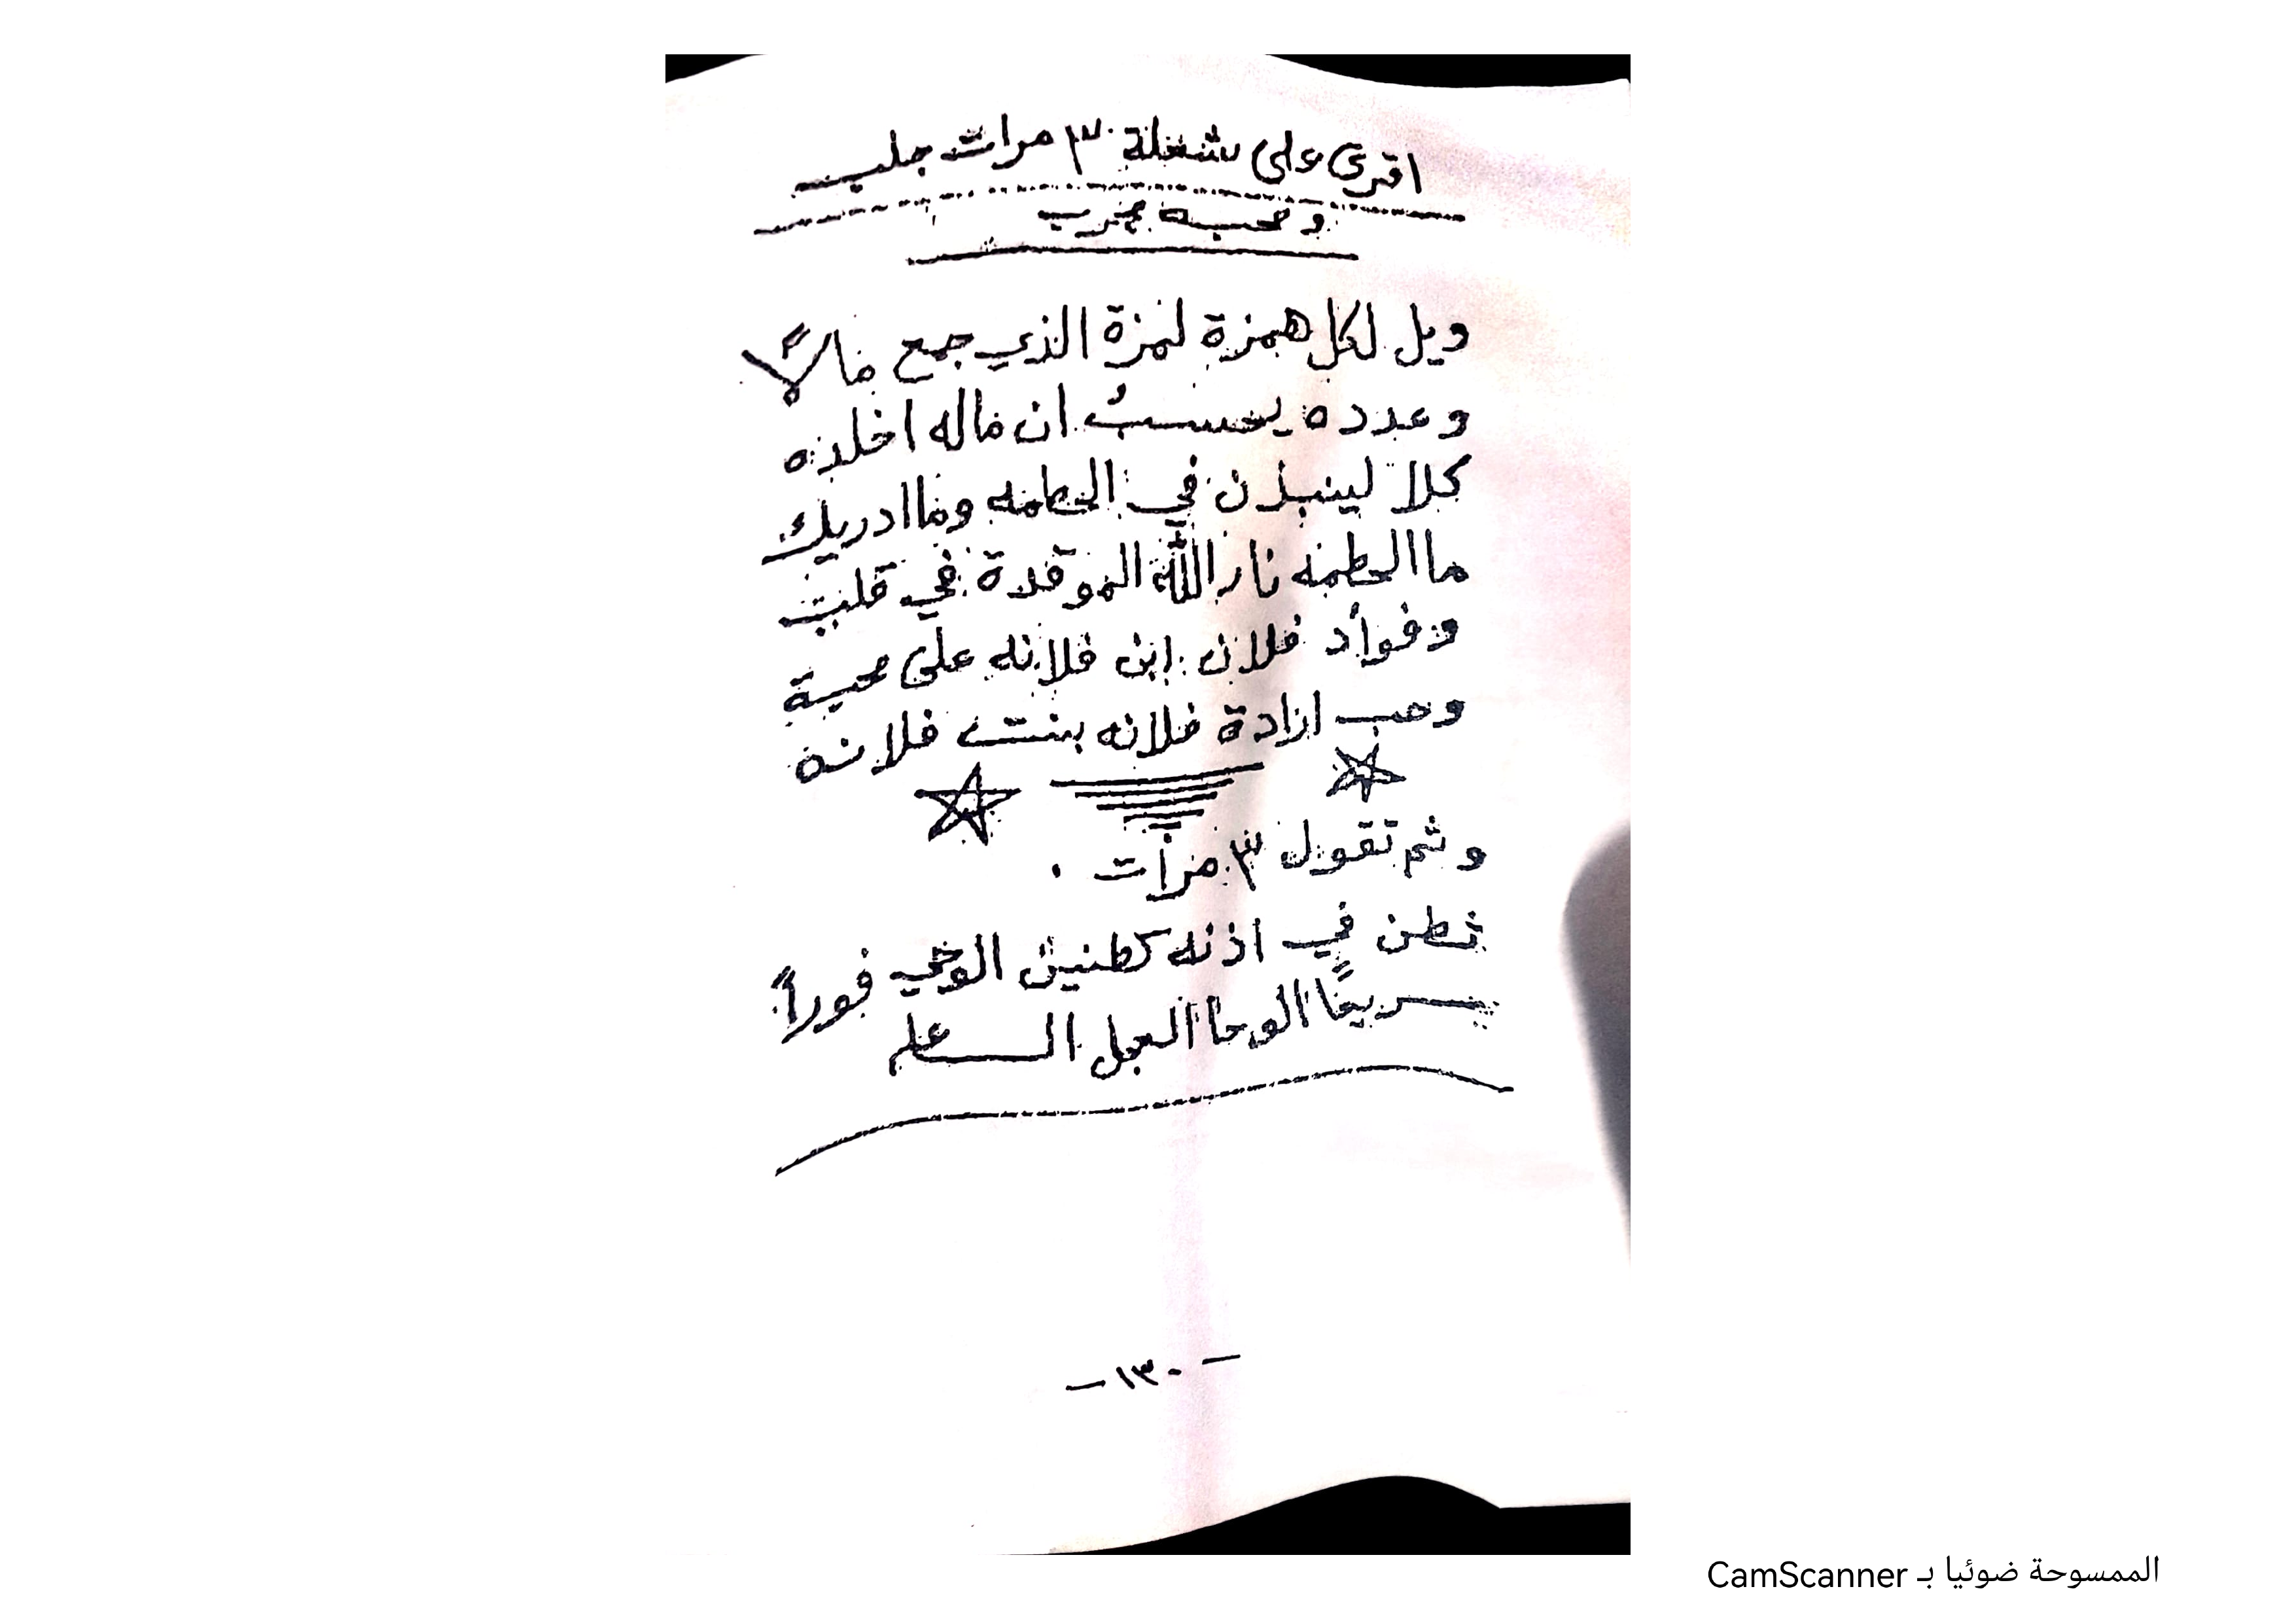 اقرئ على شعلة ٣ مرات جلب
و محبه مجرب
ويل لكل همزة لمزة الذي جمع مالاً
وعدده يحسبُ ان ماله اخلده
كلا لينبذن في الحطمه وما ادريك
ما الحطمه نار الله الموقدة في قلب
وفوأد فلان ابن فلانه على محبة
وحب ارادة فلانه بنت فلانة
وثم تقول ٣ مرات .
تطن في اذنه كطنين الوحي فوراً
سريعًا الوحا العجل
– ١٣٠ –
الممسوحة ضوئيا بـ CamScanner